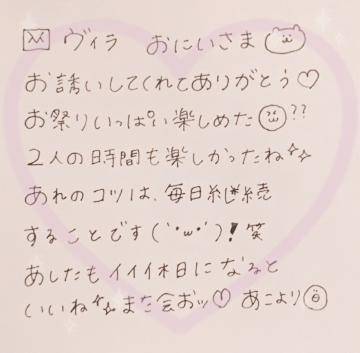 ヴィラ おにいさま
お誘いしてくれてありがとう♡
お祭りいっぱい楽しめた??
2人の時間も楽しかったね✨
あれのコツは、毎日継続
することです(｀･ω･´)!笑
あしたもイイ休日になると
いいね✨また会おッ♡ あこより